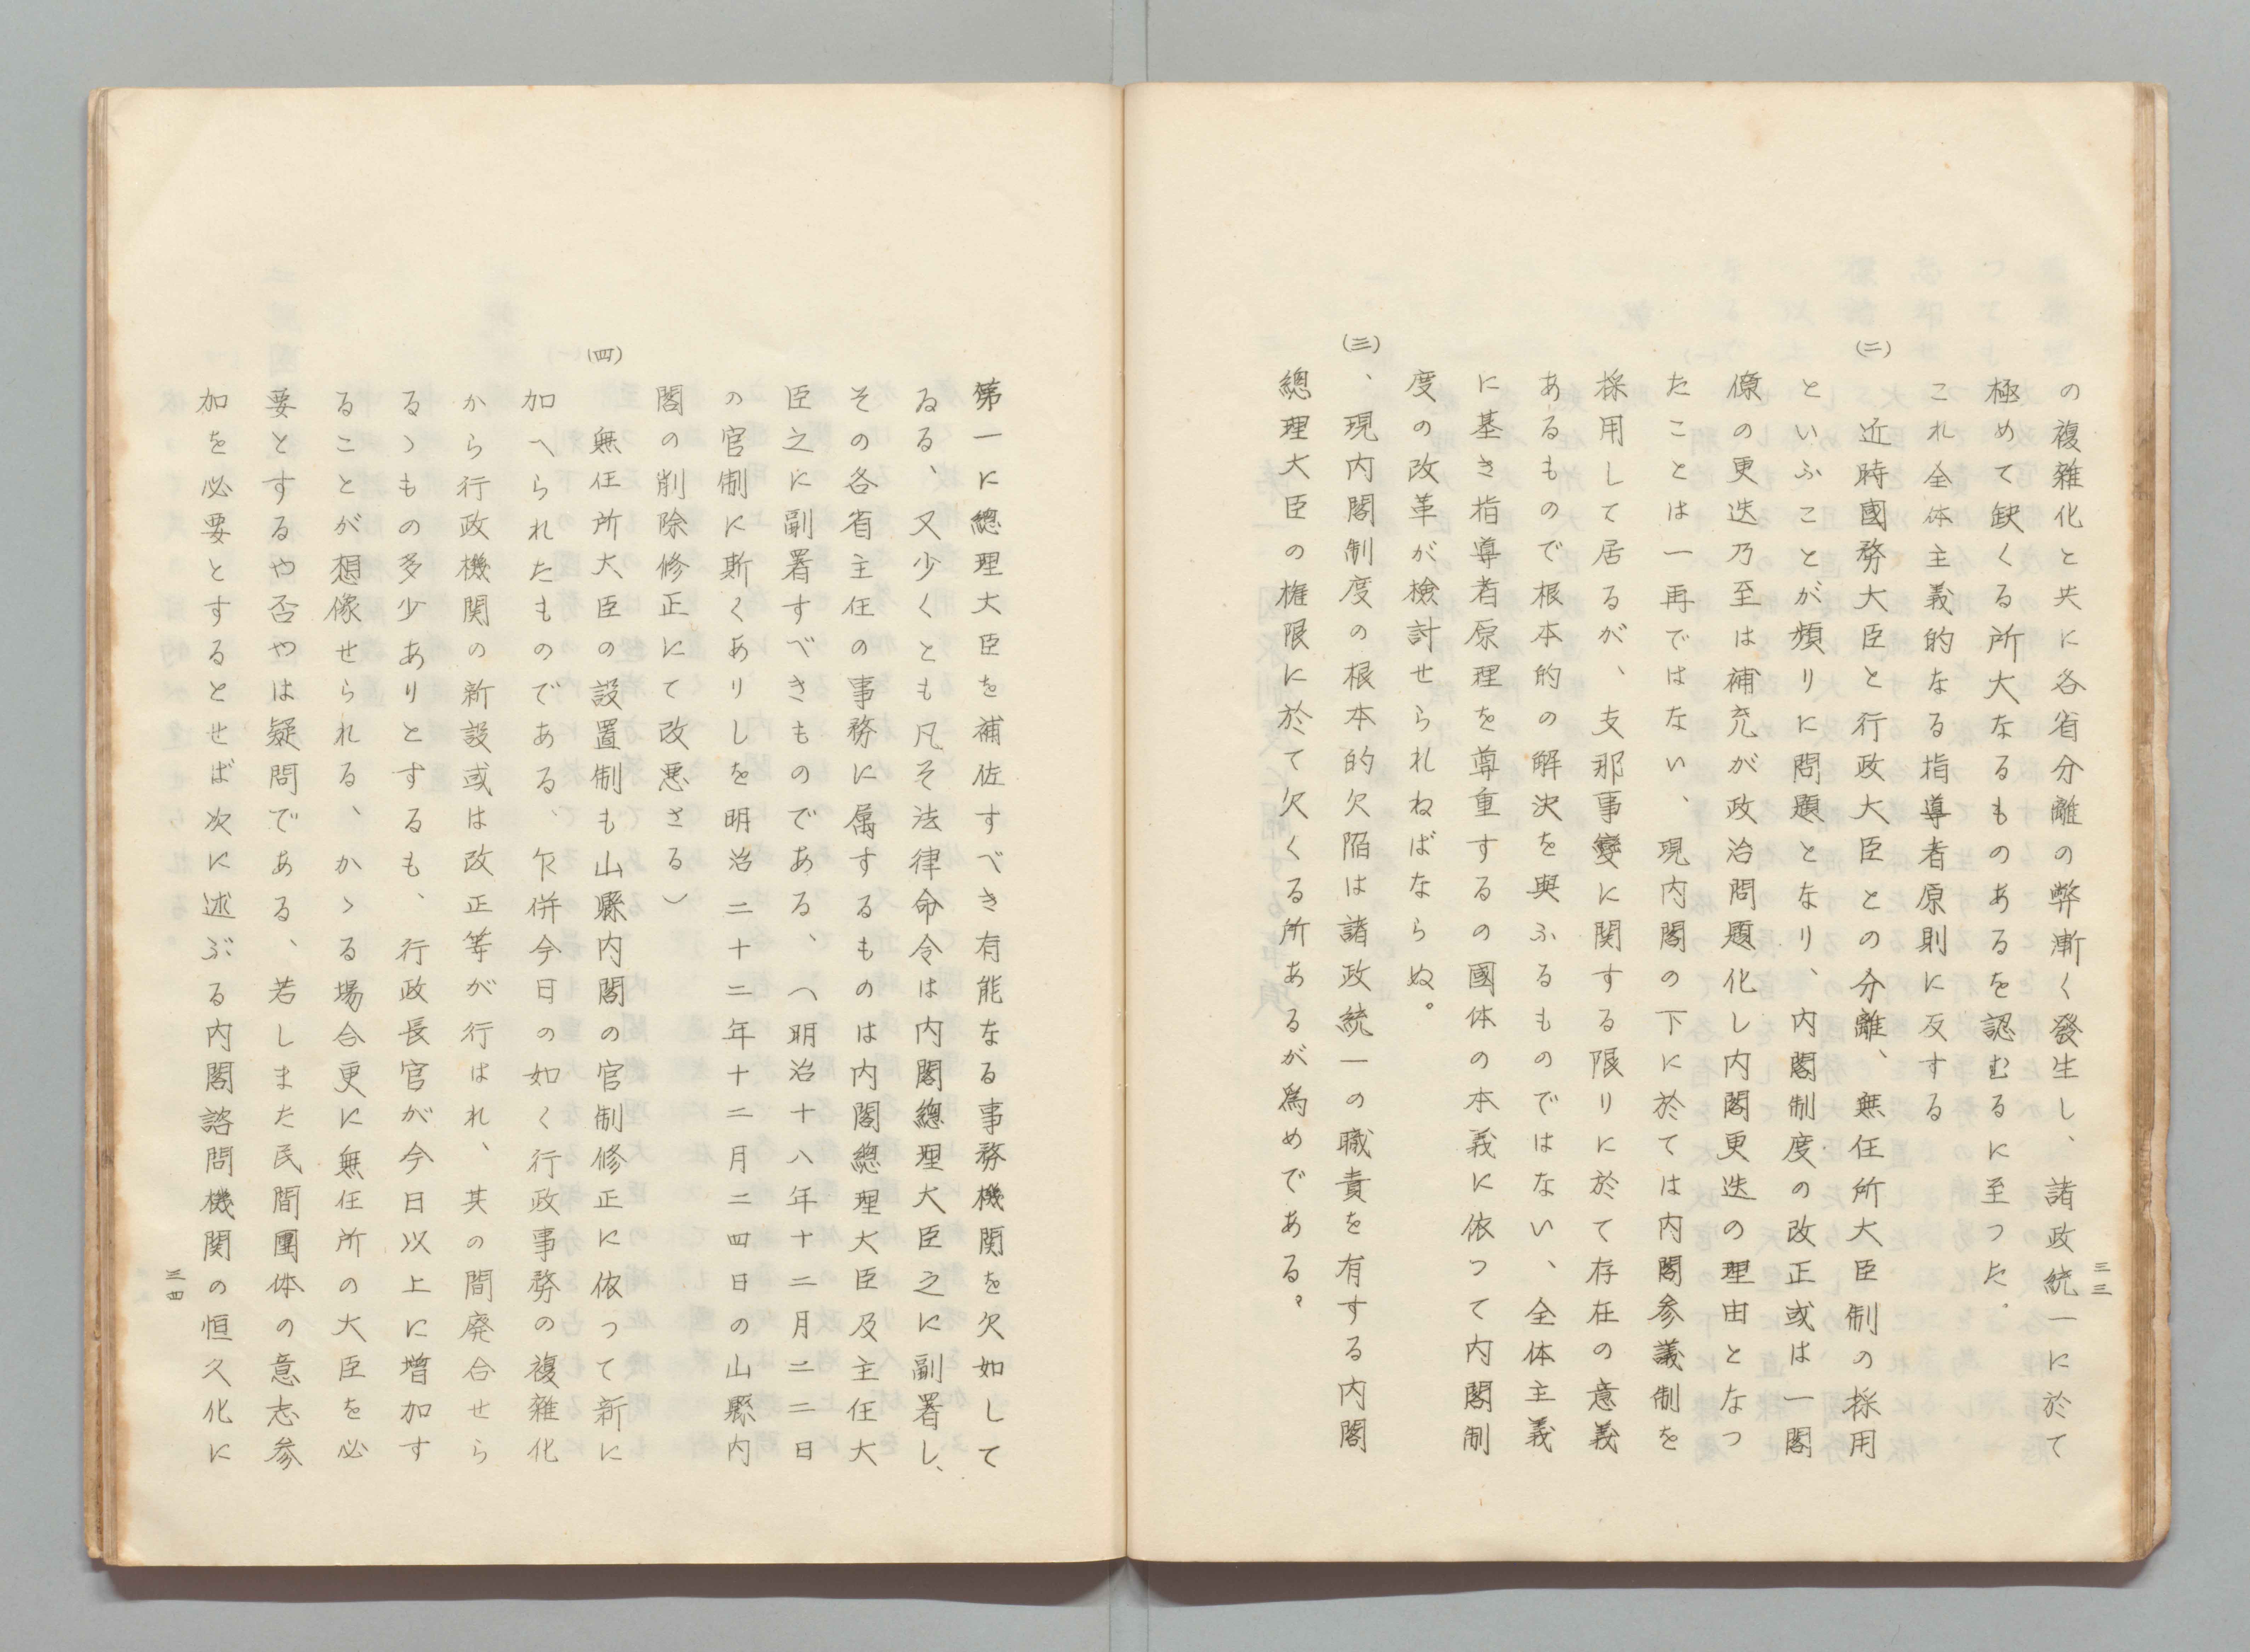 の複雑化と共に各省分離の弊漸く發生し、諸政統一に於て
極めて缺くる所大なるものあるを認むるに至つた。
これ全体主義的なる指導者原則に反する
(二)
近時國務大臣と行政大臣との分離、無任所大臣制の採用
といふことが頻りに問題となり、内閣制度の改正或は一閣
僚の更迭乃至は補充が政治問題化し内閣更迭の理由となつ
たことは一再ではない、現内閣の下に於ては内閣参議制を
採用して居るが、支那事變に関する限りに於て存在の意義
あるもので根本的の解決を與ふるものではない、全体主義
に基き指導者原理を尊重するの國体の本義に依つて内閣制
度の改革が検討せられねばならぬ。
(三)
、現内閣制度の根本的欠陥は諸政統一の職責を有する内閣
總理大臣の権限に於て欠くる所あるが爲めである。
三三
第一に總理大臣を補佐すべき有能なる事務機関を欠如して
ゐる、又少くとも凡そ法律命令は内閣總理大臣之に副署し、
その各省主任の事務に属するものは内閣總理大臣及主任大
臣之に副署すべきものである、(明治十八年十二月二二日
の官制に斯くありしを明治二十二年十二月二四日の山縣内
閣の削除修正にて改悪さる)
(四)
無任所大臣の設置制も山縣内閣の官制修正に依つて新に
加へられたものである、乍併今日の如く行政事務の複雑化
から行政機関の新設或は改正等が行はれ、其の間廃合せら
るゝもの多少ありとするも、行政長官が今日以上に増加す
ることが想像せられる、かゝる場合更に無任所の大臣を必
要とするや否やは疑問である、若しまた民間團体の意志参
加を必要とするとせば次に述ぶる内閣諮問機関の恒久化に
三四